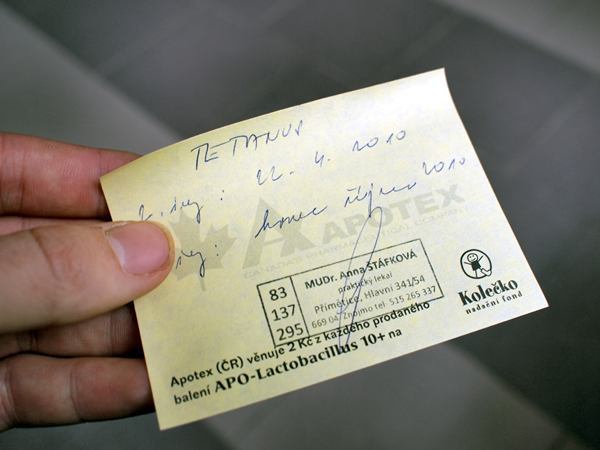 TETANUS
2. inj: 22. 4. 2010
inj: konec října 2010
APOTEX
83
137
295
MUDr. Anna ŠTÁFKOVÁ
praktický lékař
Přímětice, Hlavní 341/54
669 04 Znojmo tel. 515 265 337
Kolečko
nadační fond
Apotex (ČR) věnuje 2 Kč z každého prodaného
balení APO-Lactobacillus 10+ na